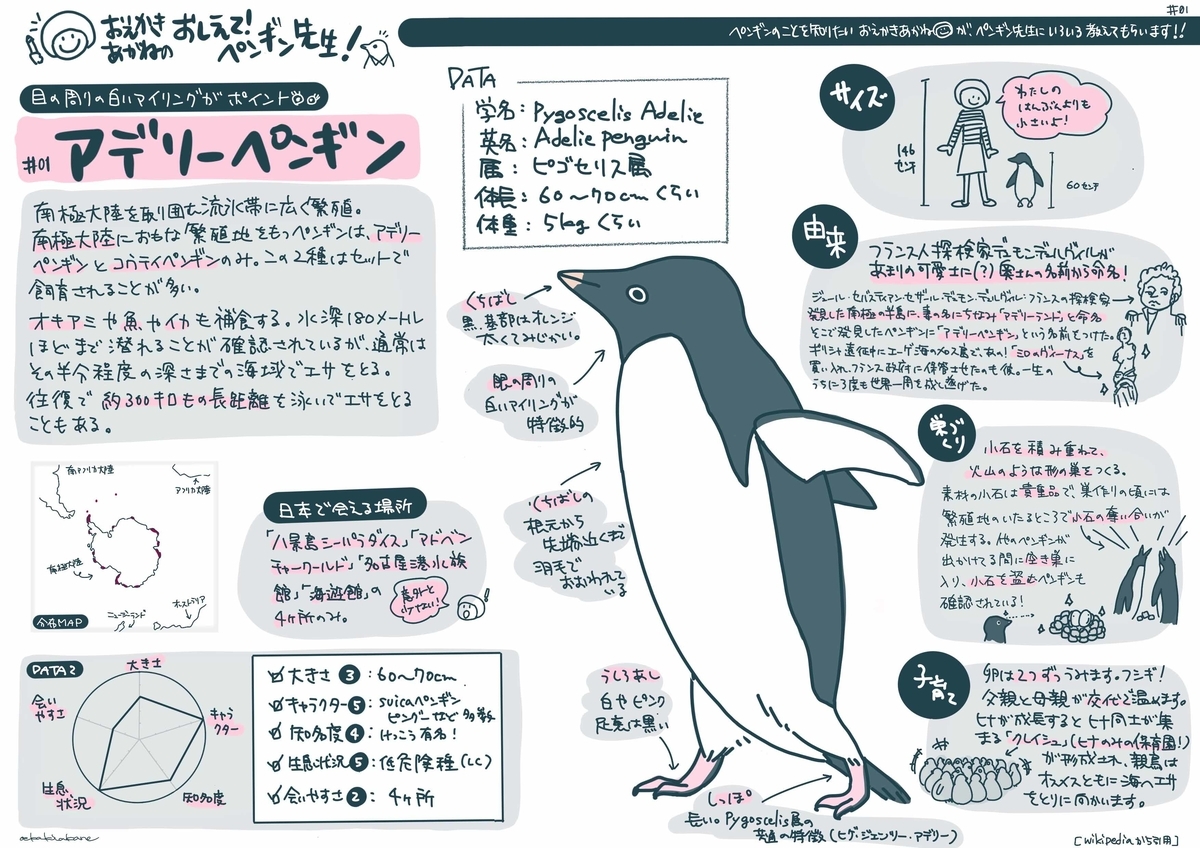 おえかき
あかねの
おしえて!
ペンギン先生!
#01
ペンギンのことを知りたい おえかきあかねが、ペンギン先生にいろいろ教えてもらいます!!
目の周りの白いアイリングがポイント
#01 アデリーペンギン
南極大陸を取り囲む流氷帯に広く繁殖。
南極大陸におもな繁殖地をもつペンギンは、アデリー
ペンギンとコウテイペンギンのみ。この2種はセットで
飼育されることが多い。
オキアミや魚やイカも補食する。水深180メートル
ほどまで潜れることが確認されているが、通常は
その半分程度の深さまでの海域でエサをとる。
往復で約300キロもの長距離を泳いでエサをとる
こともある。
DATA
学名:Pygoscelis Adelie
英名:Adelie penguin
属:ピゴセリス属
体長:60〜70cmくらい
体重:5kgくらい
サイズ
146
センチ
わたしの
はんぶんよりも
小さいよ!
60センチ
由来
フランス人探検家デュモン・デュルヴィルが
あまりの可愛さに(?)奥さんの名前から命名!
ジュール・セバスティアン・セザール・デュモン・デュルヴィル・フランスの探検家
発見した南極の半島に、妻の名にちなみ「アデリーランド」と命名
そこで発見したペンギンに「アデリーペンギン」という名前をつけた。
ギリシャ遠征中にエーゲ海のメロス島で、あの!「ミロのヴィーナス」を
買い入れ、フランス政府に保管させたのも彼。一生の
うちに3度も世界一周を成し遂げた。
くちばし
黒、基部はオレンジ
太くてみじかい。
眼の周りの
白いアイリングが
特徴的
くちばしの
根元から
先端近くまで
羽毛で
おおわれて
いる
巣づくり
小石を積み重ねて、
火山のような形の巣をつくる。
素材の小石は貴重品で、巣作りの頃には
繁殖地のいたるところで小石の奪い合いが
発生する。他のペンギンが
出かけてる間に空き巣に
入り、小石を盗むペンギンも
確認されている!
南アフリカ大陸
アフリカ大陸
南極大陸
ニュージーランド
オーストラリア
分布MAP
日本で会える場所
「八景島シーパラダイス」「アドベン
チャーワールド」「名古屋港水族
館」「海遊館」の
4ヶ所のみ。
意外と
少せない!
DATA2
大きさ
キャラ
クター
知名度
生息
状況
会い
やすさ
大きさ 3:60〜70cm
キャラクター 5:suicaペンギン
ピングーなど多数
知名度 4:けっこう有名!
生息状況 5:低危険種(LC)
会いやすさ 2:4ヶ所
うしろあし
白やピンク
足裏は黒い
しっぽ
長い。Pygoscelis属の
共通の特徴(ヒゲ・ジェンツー・アデリー)
子育て
卵は2つずつうみます。フシギ!
父親と母親が交代で温めます。
ヒナが成長するとヒナ同士が集
まる「クレイシュ」(ヒナのみの保育園!)
が形成され、親鳥は
オスメスともに海へエサ
をとりに向かいます。
oekakiakane
[wikipediaから引用]